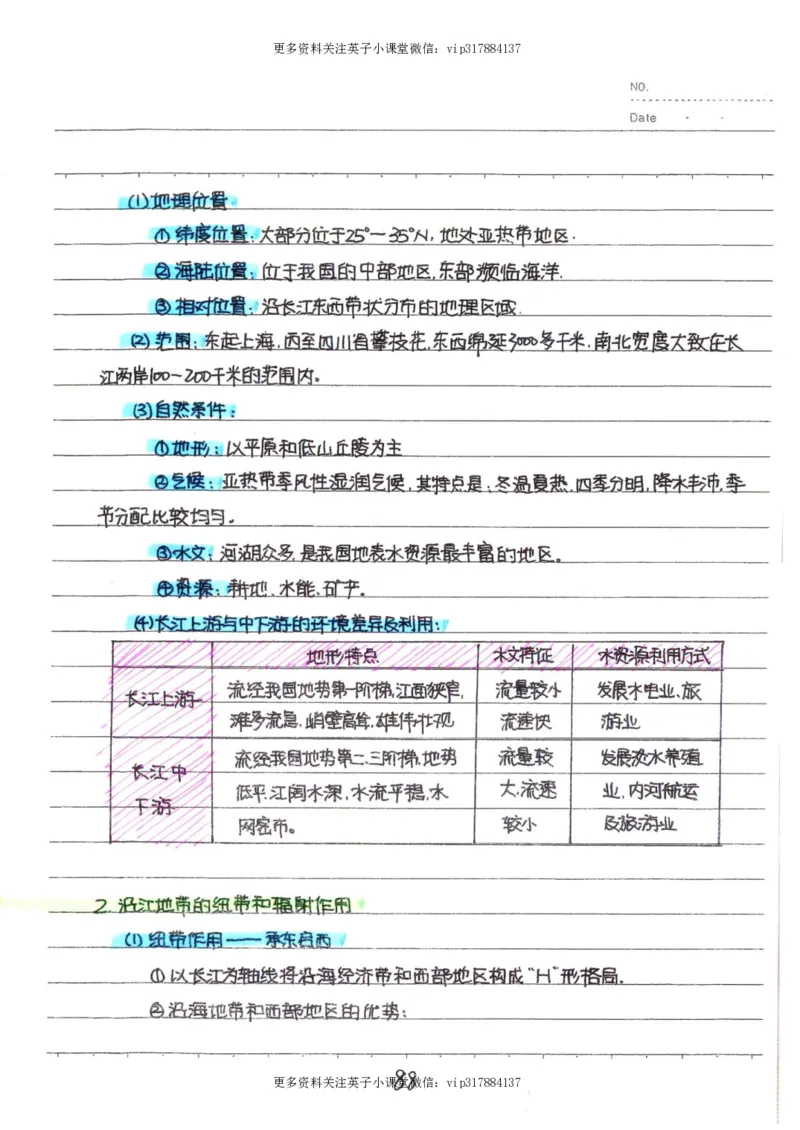 更多资料关注英子小课堂微信：vip317884137
NO.
Date
(1)地理位置
①纬度位置：大部分位于25°—35°N，地处亚热带地区.
②海陆位置：位于我国的中部地区，东部濒临海洋.
③相对位置：沿长江东西带状分布的地理区域.
(2)范围：东起上海，西至四川省攀枝花，东西绵延3000多千米，南北宽度大致在长
江两岸100~200千米的范围内。
(3)自然条件：
①地形：以平原和低山丘陵为主
②气候：亚热带季风性湿润气候，其特点是：冬温夏热、四季分明，降水丰沛，季
节分配比较均匀。
③水文：河湖众多，是我国地表水资源最丰富的地区。
④资源：耕地、水能、矿产。
(4)长江上游与中下游的环境差异及利用：
地形特点 水文特征 水资源利用方式
长江上游 流经我国地势第一阶梯，江面狭窄， 流量较小 发展水电业、旅
滩多流急、峭壁高耸、雄伟壮观 流速快 游业
长江中 流经我国地势第二、三阶梯，地势 流量较 发展淡水养殖
下游 低平，江阔水深，水流平稳，水 大，流速 业，内河航运
网密布。 较小 及旅游业
2. 沿江地带的纽带和辐射作用
(1)纽带作用——承东启西
①以长江为轴线将沿海经济带和西部地区构成“H”形格局.
②沿海地带和西部地区的优势：
88
更多资料关注英子小课堂微信：vip317884137